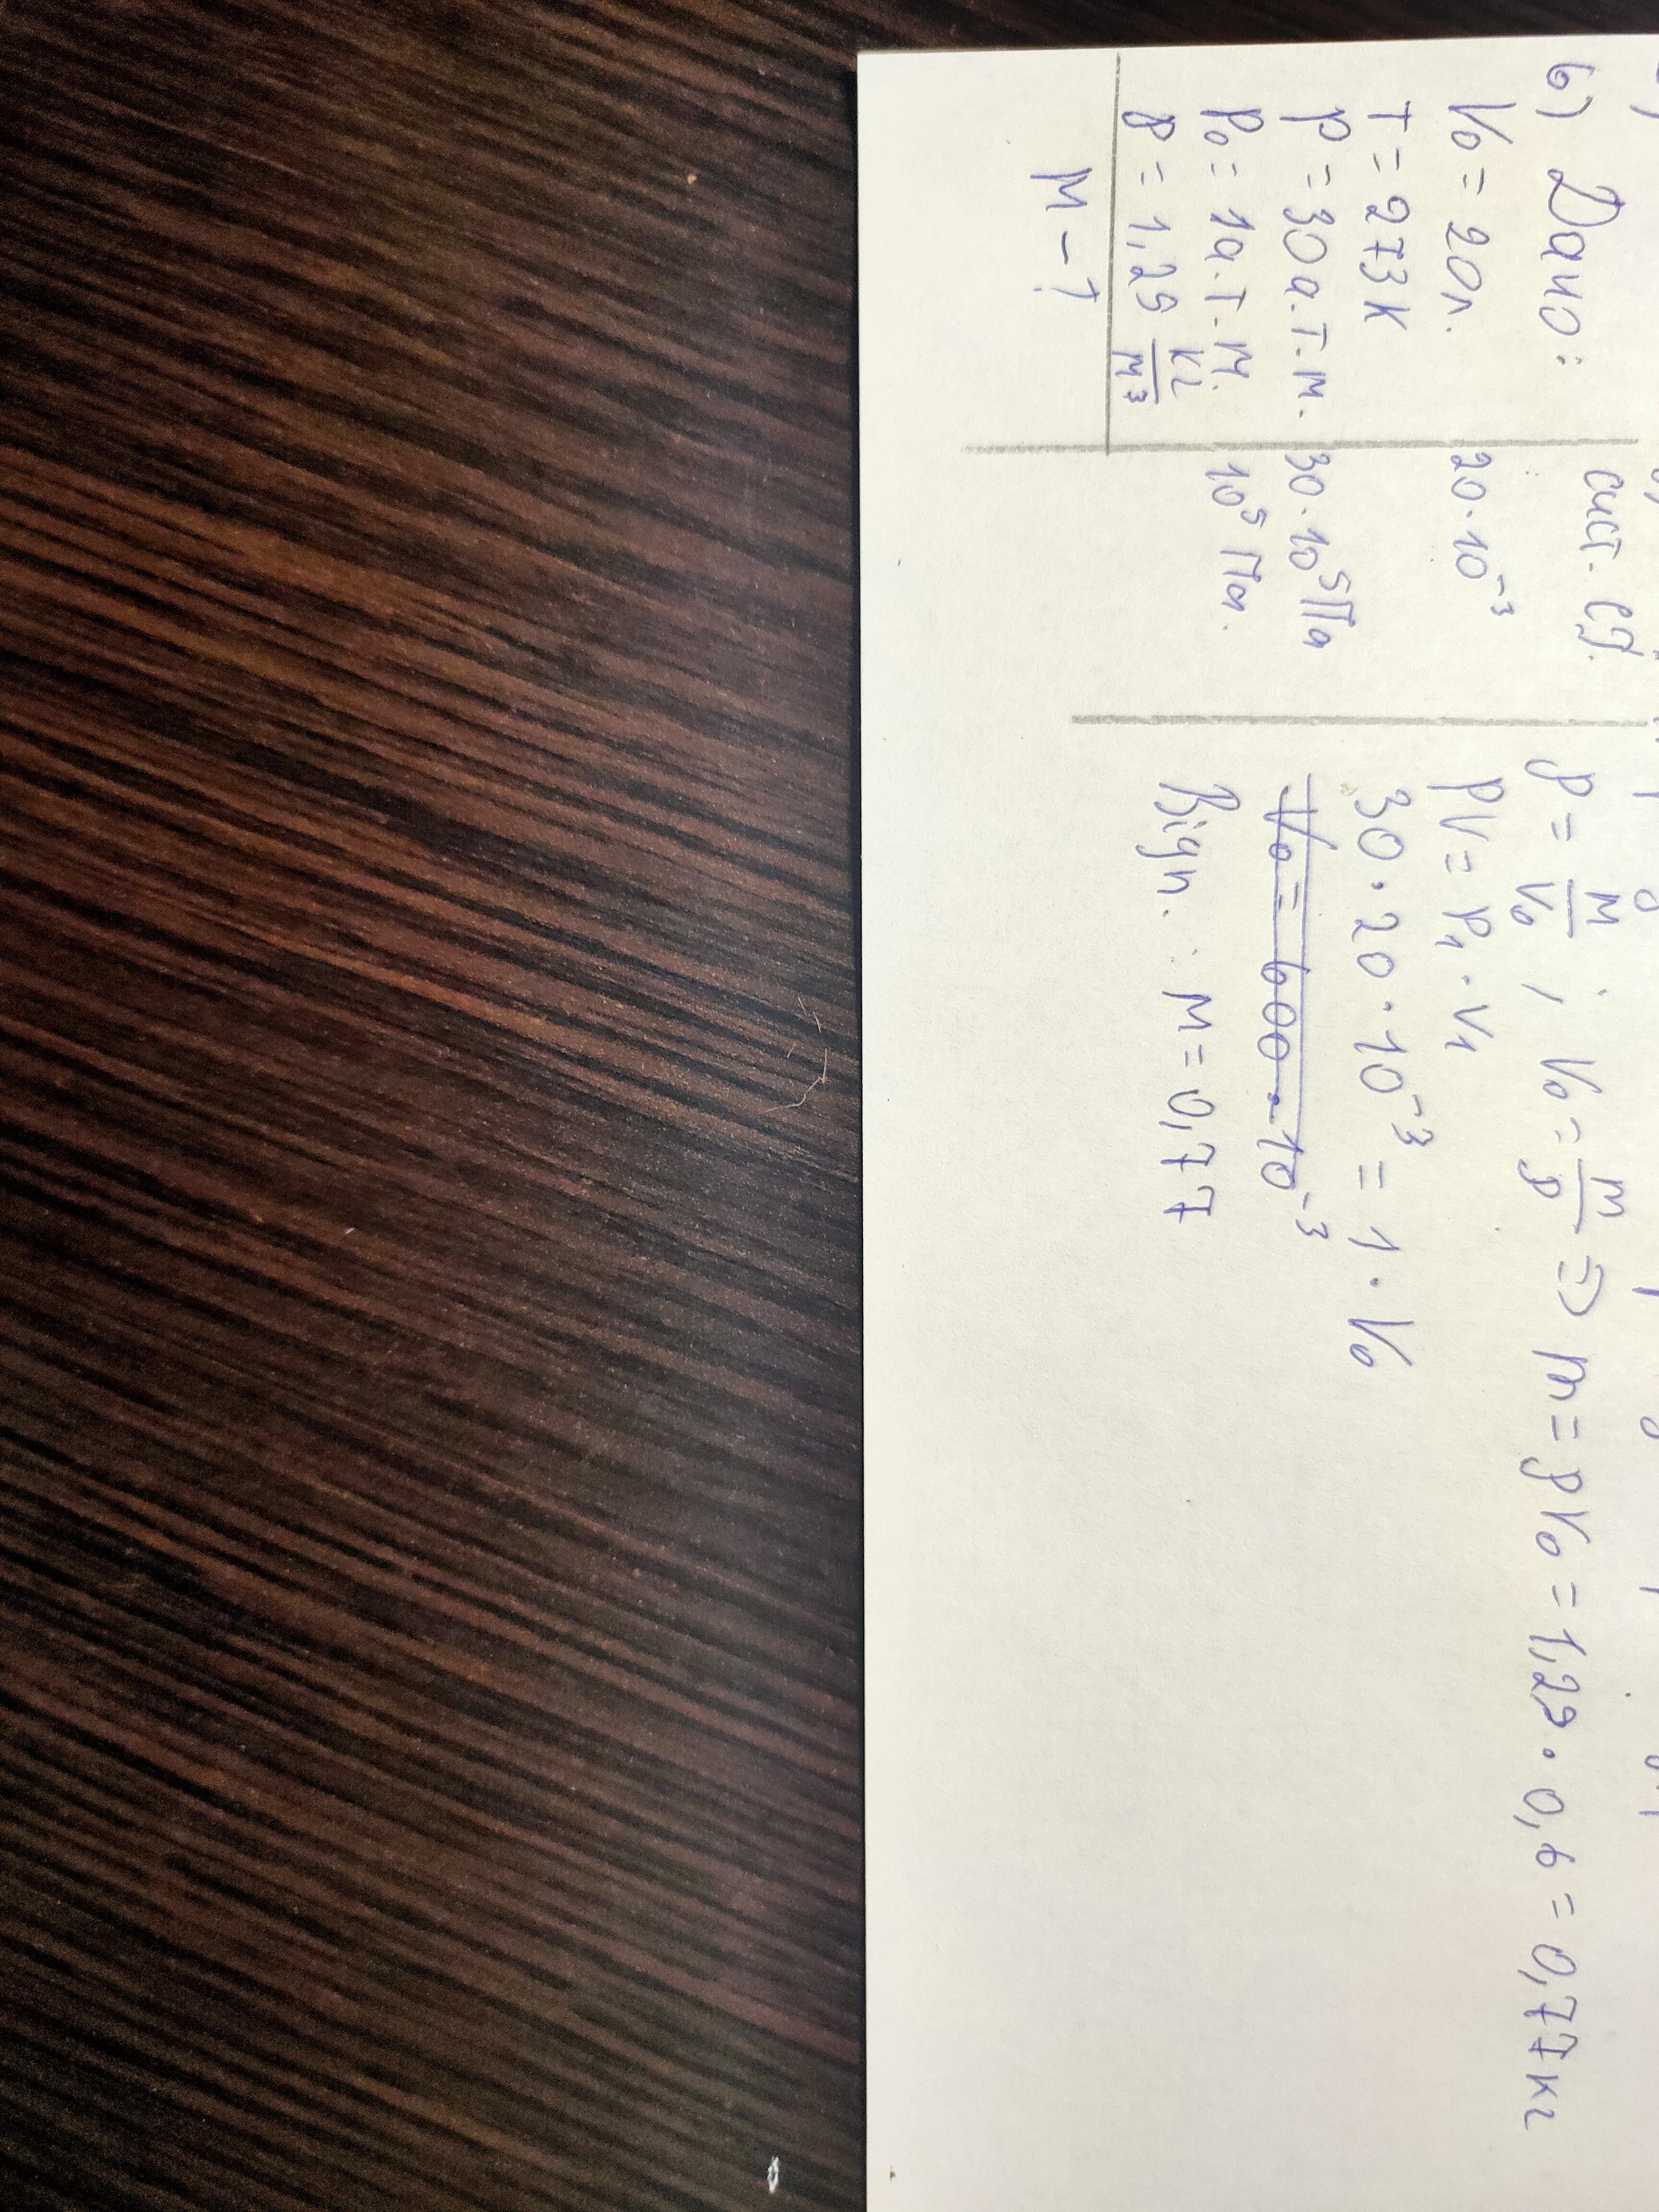 6) Дано:
V₀ = 20л.
T = 273 K
p = 30 а.т.м.
p₀ = 1 а.т.м.
ρ = 1,29 кг/м³
m - ?
сист. од.
20·10⁻³
30·10⁵ Па
10⁵ Па.
ρ = m/V₀ ; V₀ = m/ρ => m = ρV₀ = 1,29·0,6 = 0,77 кг
pV = p₁·V₁
30·20·10⁻³ = 1·V₀
V₀ = 600·10⁻³
Відп. : m = 0,77